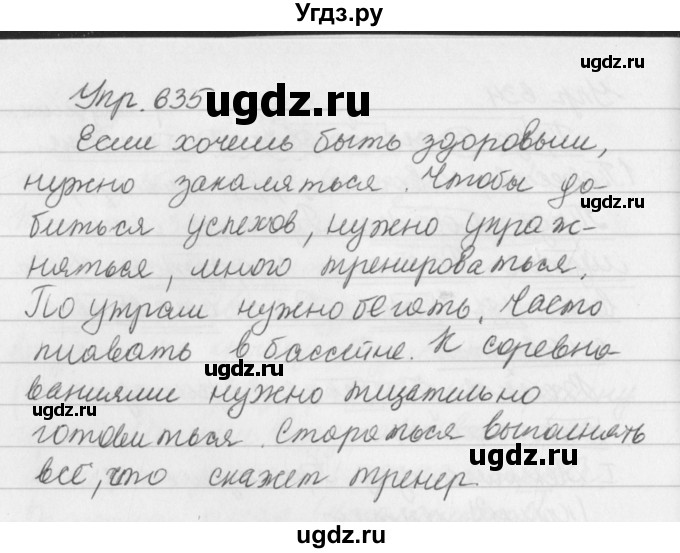 Угдз.ру
ugdz.ru
Упр. 635
ugdz.ru
Если хочешь быть здоровым,
нужно закаляться. Чтобы до-
ugdz.ru
биться успехов, нужно упраж-
няться, много тренироваться.
ugdz.ru
По утрам нужно бегать. Часто
плавать в бассейне. К соревно-
ugdz.ru
ваниями нужно тщательно
ugdz.ru
готовиться. Стараться выполнять
всё, что скажет тренер.
ugdz.ru
ugdz.ru